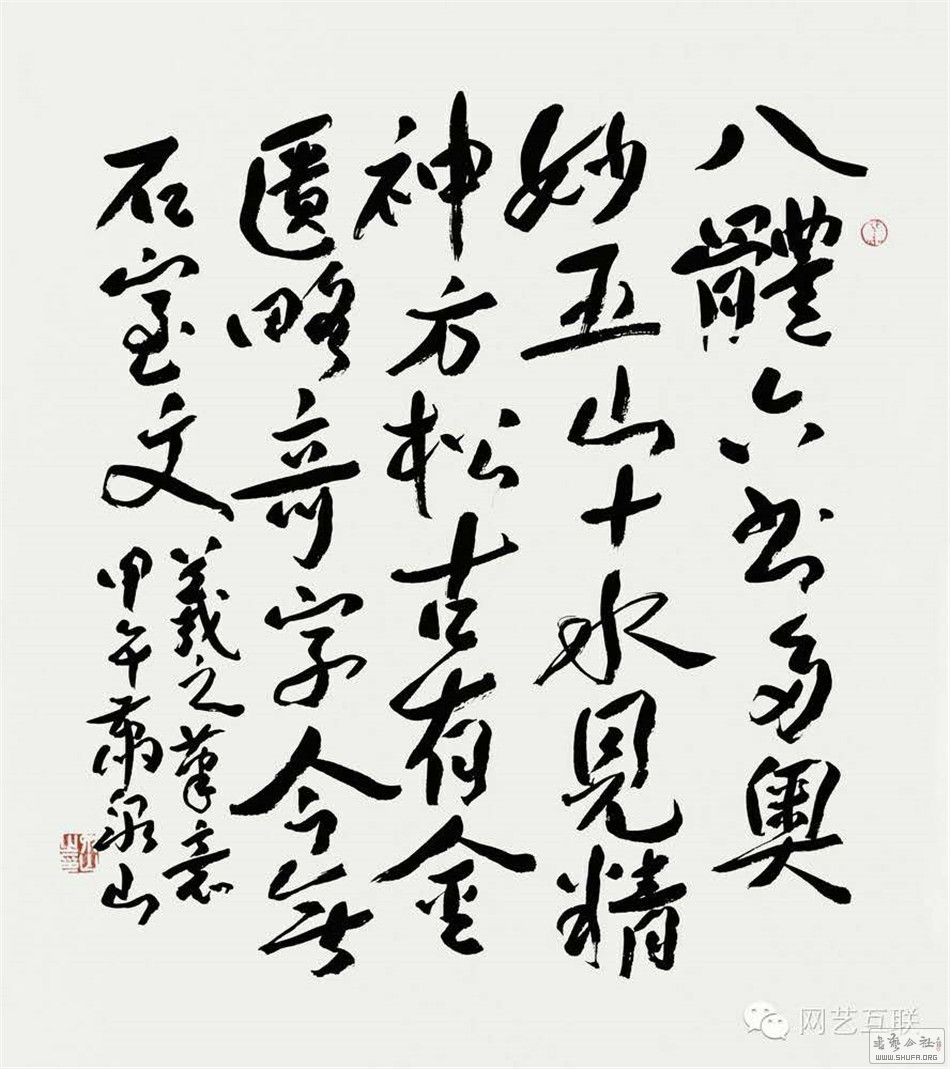 八體六书多奥
妙五山十水見精
神方松古有金
匱略奇字今無
石室文
羲之筆意
甲午山
网艺互联
书艺公社
WWW.SHUFA.ORG